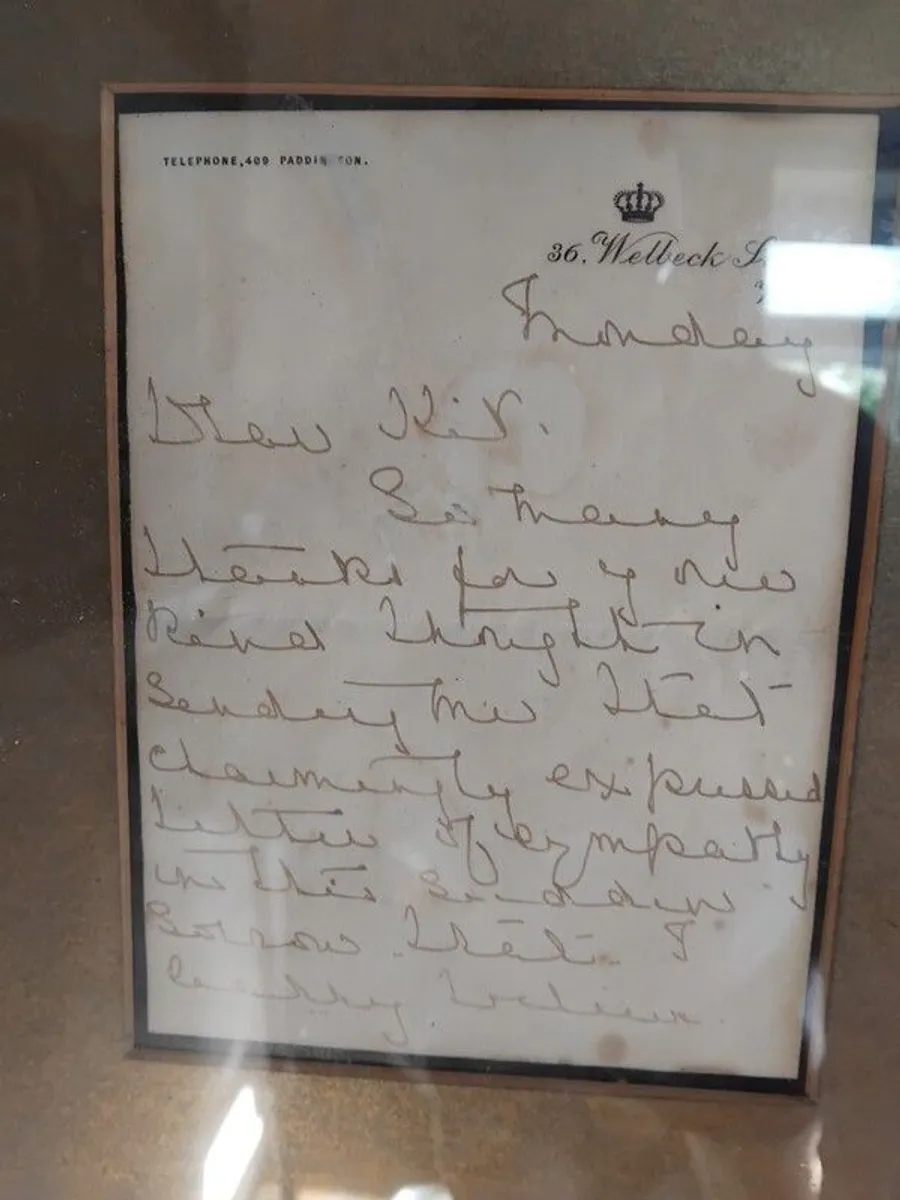 TELEPHONE, 409 PADDINGTON.
36. Welbeck
Monday
Dear Kit.
So many
thanks for your
kind thought in
sending me that
charmingly expressed
letter of sympathy
in this sudden
sorrow that I